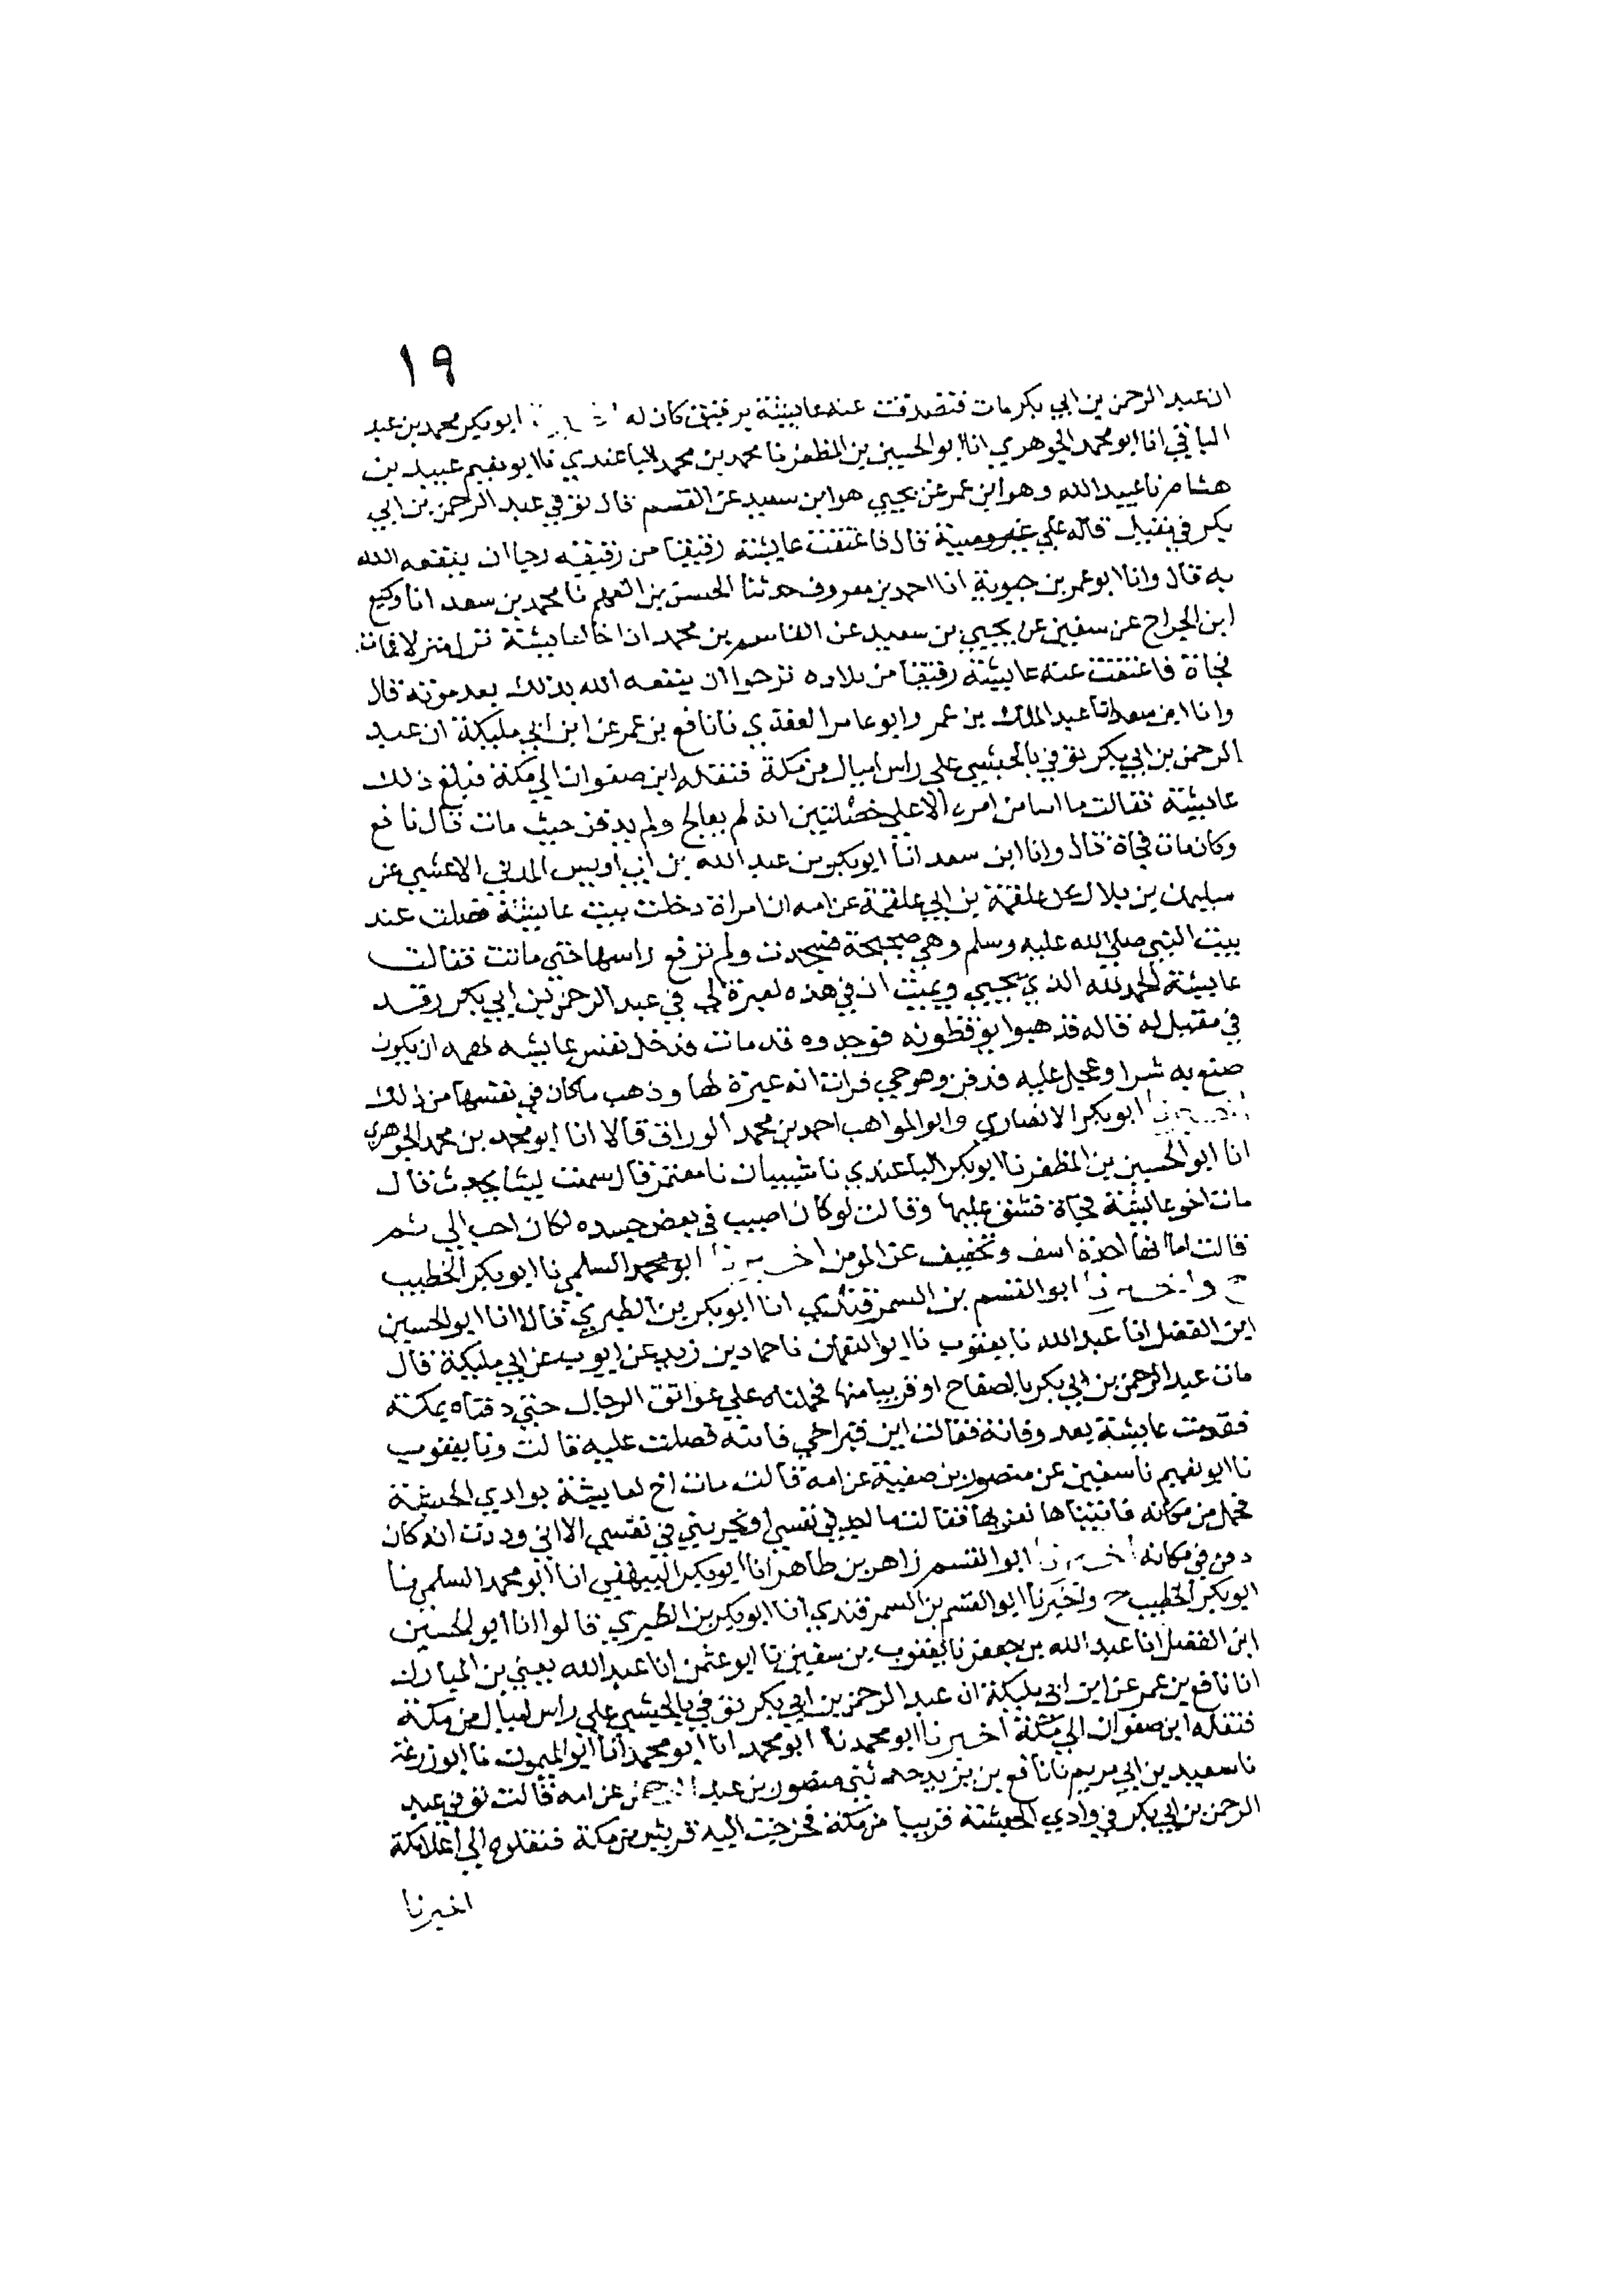 ١٩
ان عبد الرحمن بن ابي بكر مات فتصدقت عنه عايشة برقيق كان له ابو بكر محمد بن عبد
الباقي انا ابو محمد الجوهري انا ابو الحسين بن المظفر نا محمد بن محمد الباغندي نا ابو نعيم عبيد بن
هشام نا عبيد الله وهو ابن عمر عن يحيي هو ابن سعيد عن القسم قال توفي عبد الرحمن بن ابي
بكر في مقيل قاله علي غير وصية قال فاعتقت عايشة رقيقا من رقيقه رجا ان ينفعه الله
به قال وانا ابو عمر بن حيوية انا احمد بن معروف حدثنا الحسين بن الفهم نا محمد بن سعد انا وكيع
ابن الجراح عن سفين عن يحيي بن سعيد عن القاسم بن محمد ان اخا لعايشة نزل منزلا فمات
فجاة فاعتقت عنه عايشة رقيقا من تلاده ترجوا ان ينفعه الله بذلك بعد موته قال
وانا ابن سعد انا عبد الملك بن عمر وابو عامر العقدي نا نافع بن عمر عن ابن ابي مليكة ان عبد
الرحمن بن ابي بكر توفي بالحبشي علي راس اميال من مكة فنقله ابن صفوان الي مكة فبلغ ذلك
عايشة فقالت ما اسا من امره الا علي خصلتين انه لم يعالج ولم يدفن حيث مات قال نافع
وكان مات فجاة قال وانا ابن سعد انا ابو بكر بن عبد الله بن ابي اويس المدني الاعشي عن
سليمن بن بلال عن علقمة بن ابي علقمة عن امه ان امراة دخلت بيت عايشة فصلت عند
بيت النبي صلي الله عليه وسلم وهي صحيحة فسجدت ولم ترفع راسها حتي ماتت فقالت
عايشة الحمد لله الذي يحيي ويميت ان في هذه لعبرة لي في عبد الرحمن بن ابي بكر رقد
في مقيل له قاله فذهبوا يوقظونه فوجدوه قد مات فدخل نفس عايشه تهمه ان يكون
صنع به شرا وعجل عليه فدفن وهو حي فرات انه عبرة لها وذهب ما كان في نفسها من ذلك
ابو بكر الانصاري وابو المواهب احمد بن محمد الوراق قالا انا ابو محمد بن محمد الجوهري
انا ابو الحسين بن المظفر نا ابو بكر الباغندي نا شيبان نا معتمر قال سمعت ليثا يحدث قال
مات اخو عايشة فجاة فشق عليها وقالت لو كان اصيب في بعض جسده لكان احب الي ثم
قالت اما انها اخذة اسف وتخفيف عن المومن اخبرنا ابو محمد السلمي نا ابو بكر الخطيب
ح واخبرنا ابو القسم بن السمرقندي انا ابو بكر بن الطبري قالا انا ابو الحسين
ابن الفضل انا عبد الله نا يعقوب نا ابو النعمان نا حماد بن زيد عن ايوب عن ابي مليكة قال
مات عبد الرحمن بن ابي بكر بالصفاح او قريبا منها فحملناه علي عواتق الرجال حتي دفناه بمكة
فقدمت عايشة بعد وفاته فقالت اين قبر اخي فاتته فصلت عليه قالت ونا يعقوب
نا ابو نعيم نا سفين عن منصور بن صفية عن امه قالت مات اخ لعايشة بوادي الحبشة
فحمل من مكانه فاتيناها نعزيها فقالت ما اجد في نفسي او يحزنني في نفسي الا اني وددت انه كان
دفن في مكانه اخبرنا ابو القسم زاهر بن طاهر انا ابو بكر البيهقي انا ابو محمد السلمي نا
ابو بكر الخطيب ح واخبرنا ابو القسم بن السمرقندي انا ابو بكر بن الطبري قالوا انا ابو الحسين
ابن الفضل انا عبد الله بن جعفر نا يعقوب بن سفين نا ابو عثمن انا عبد الله يعني بن المبارك
انا نافع بن عمر عن ابن ابي مليكة ان عبد الرحمن بن ابي بكر توفي بالحبشي علي راس اميال من مكة
فنقله ابن صفوان الي مكة اخبرنا ابو محمد نا ابو محمد انا ابو محمد انا ابو الميمون نا ابو زرعة
نا سعيد بن ابي مريم نا نافع بن يزيد حدثني منصور بن عبد الرحمن عن امه قالت توفي عبد
الرحمن بن ابي بكر في وادي الحبشة قريبا من مكة فخرجت اليه قريش من مكة فنقلوه الي اعلا مكة
اخبرنا